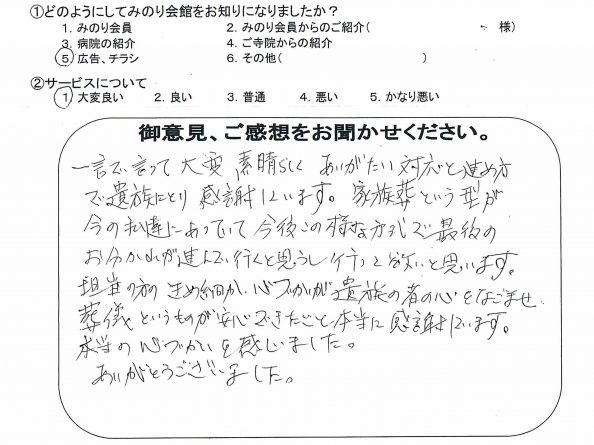 ①どのようにしてみのり会館をお知りになりましたか？
1. みのり会員 2. みのり会員からのご紹介( 様)
3. 病院の紹介 4. ご寺院からの紹介
5. 広告、チラシ 6. その他( )
②サービスについて
1. 大変良い 2. 良い 3. 普通 4. 悪い 5. かなり悪い
御意見、ご感想をお聞かせください。
一言で言って大変素晴らしく ありがたい対応と進め方
で遺族にとり感謝しています。家族葬という型が
今の私達にあっていて今後この様な方式で最後の
お分かれが進んで行くと思うし行って欲いと思います。
担当の方のきめ細かい心づかいが遺族の者の心をなごませ
葬儀というものが安心できたこと本当に感謝しています。
本当の心づかいを感じました。
ありがとうございました。